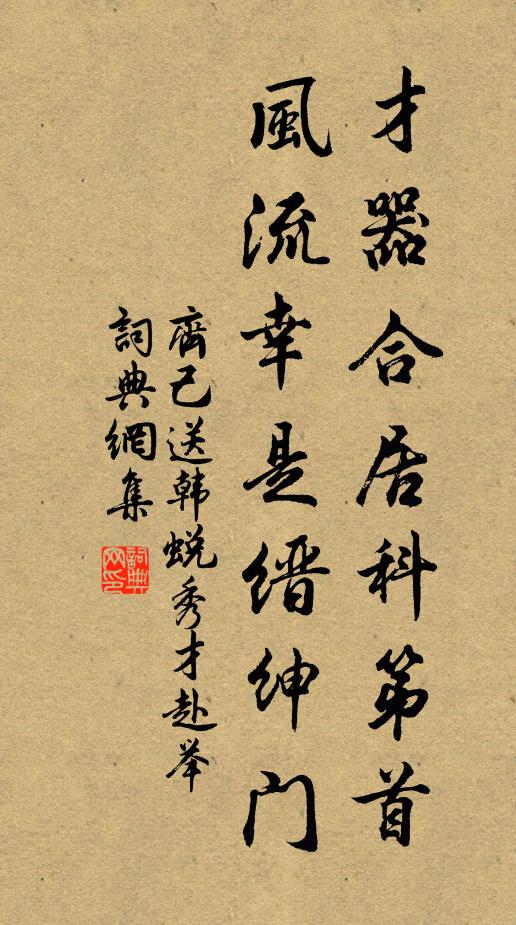 才器合居科第首
風流幸是缙紳門
齊己送韩蜕秀才赴举
詞典網集
詞典网印